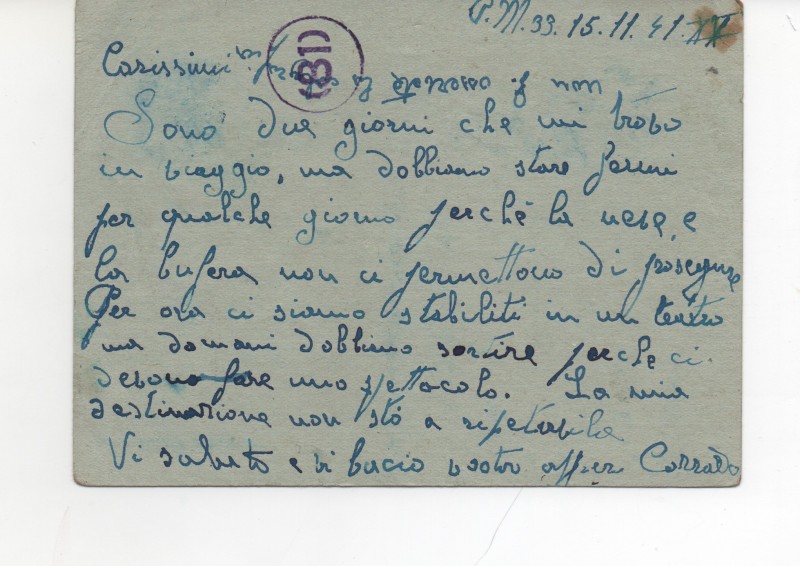 P.M. 33. 15.11.41. XX
Carissimi
181
non
Sono due giorni che mi trovo
in viaggio, ma dobbiamo stare fermi
per qualche giorno perchè la neve, e
la bufera non ci permettono di proseguire
Per ora ci siamo stabiliti in un teatro
ma domani dobbiamo sortire perche ci
devono fare uno spettacolo. La mia
destinazione non stò a ripetervela
Vi saluto e vi bacio vostro affez Corrado